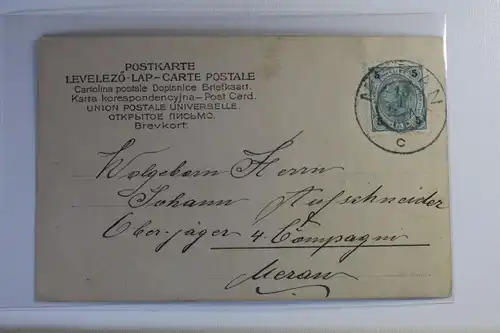 POSTKARTE
LEVELEZŐ-LAP-CARTE POSTALE
Cartolina postale Dopisnice Briefkaart.
Karta korespondencyjna-Post Card.
UNION POSTALE UNIVERSELLE.
ОТКРЫТОЕ ПИСЬМО.
Brevkort.
5 5
C
Wolgeborn Herrn
Johann Aufschneider
Ober-jäger 4. Compagni
Meran